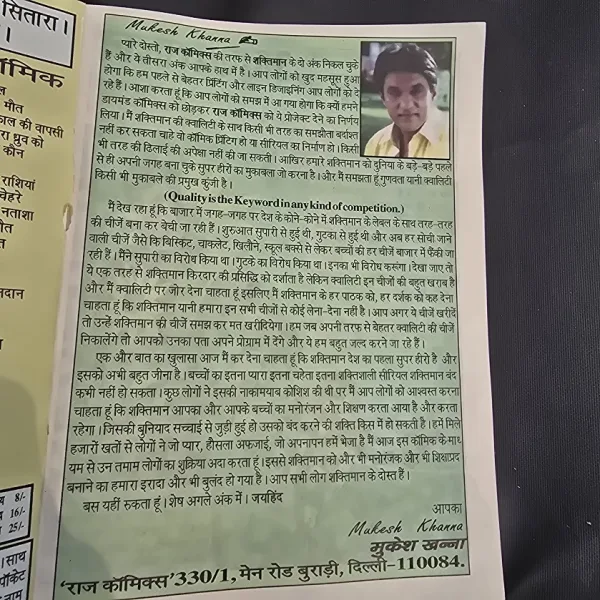 सितारा।
।
ॉमिक
ल
मौत
काल की वापसी
रा ध्रुव को
कौन
राशियां
चेहरे
नताशा
ौत
त
नदान
8/-
16/-
25/-
।साथ
पॉकेट
नाम
Mukesh Khanna
प्यारे दोस्तो, राज कॉमिक्स की तरफ से शक्तिमान के दो अंक निकल चुके
हैं और ये तीसरा अंक आपके हाथ में है।आप लोगों को खुद महसूस हुआ
होगा कि हम पहले से बेहतर प्रिंटिंग और लाइन डिजाइनिंग आप लोगों को दे
रहे हैं।आशा करता हूं कि आप लोगों को समझ में आ गया होगा कि क्यों हमने
डायमंड कॉमिक्स को छोड़कर राज कॉमिक्स को ये प्रोजेक्ट देने का निर्णय
लिया। मैं शक्तिमान की क्वालिटी के साथ किसी भी तरह का समझौता बर्दाश्त
नहीं कर सकता चाहे वो कॉमिक प्रिंटिग हो या सीरियल का निर्माण हो।किसी
भी तरह की ढिलाई की अपेक्षा नहीं की जा सकती। आखिर हमारे शक्तिमान को दुनिया के बड़े-बड़े पहले
से ही अपनी जगह बना चुके सुपर हीरों का मुकाबला जो करना है।और मैं समझता हूं गुणवता यानी क्वालिटी
किसी भी मुकाबले की प्रमुख कुंजी है।
(Quality is the Keyword in any kind of competition.)
मैं देख रहा हूं कि बाजार में जगह-जगह पर देश के कोने-कोने में शक्तिमान के लेबल के साथ तरह-तरह
की चीजें बना कर बेची जा रही हैं।शुरुआत सुपारी से हुई थी, गुटका से हुई थी और अब हर सोची जाने
वाली चीजें जैसे कि बिस्किट, चाकलेट, खिलौने, स्कूल बक्से से लेकर बच्चों की हर चीजें बाजार में फैंकी जा
रही हैं।मैंने सुपारी का विरोध किया था।गुटके का विरोध किया था।इनका भी विरोध करूंगा।देखा जाए तो
ये एक तरह से शक्तिमान किरदार की प्रसिद्धि को दर्शाता है लेकिन क्वालिटी इन चीजों की बहुत खराब है
और मैं क्वालिटी पर जोर देना चाहता हूं इसलिए मैं शक्तिमान के हर पाठक को, हर दर्शक को कह देना
चाहता हूं कि शक्तिमान यानी हमारा इन सभी चीजों से कोई लेना-देना नहीं है।आप अगर ये चीजें खरीदें
तो उन्हें शक्तिमान की चीजें समझ कर मत खरीदियेगा।हम जब अपनी तरफ से बेहतर क्वालिटी की चीजें
निकालेंगे तो आपको उनका पता अपने प्रोग्राम में देंगे और ये हम बहुत जल्द करने जा रहे हैं।
एक और बात का खुलासा आज मैं कर देना चाहता हूं कि शक्तिमान देश का पहला सुपर हीरो है और
इसको अभी बहुत जीना है।बच्चों का इतना प्यारा इतना चहेता इतना शक्तिशाली सीरियल शक्तिमान बंद
कभी नहीं हो सकता।कुछ लोगों ने इसकी नाकामयाब कोशिश की थी पर मैं आप लोगों को आश्वस्त करना
चाहता हूं कि शक्तिमान आपका और आपके बच्चों का मनोरंजन और शिक्षण करता आया है और करता
रहेगा।जिसकी बुनियाद सच्चाई से जुड़ी हुई हो उसको बंद करने की शक्ति किस में हो सकती है।हमें मिले
हजारों खतों से लोगों ने जो प्यार, हौसला अफजाई, जो अपनापन हमें भेजा है मैं आज इस कॉमिक के माध्
यम से उन तमाम लोगों का शुक्रिया अदा करता हूं।इससे शक्तिमान को और भी मनोरंजक और भी शिक्षाप्रद
बनाने का हमारा इरादा और भी बुलंद हो गया है।आप सभी लोग शक्तिमान के दोस्त हैं।
बस यहीं रुकता हूं।शेष अगले अंक में।जयहिंद
आपका
Mukesh Khanna
मुकेश खन्ना
'राज कॉमिक्स' 330/1, मेन रोड बुराड़ी, दिल्ली-110084.